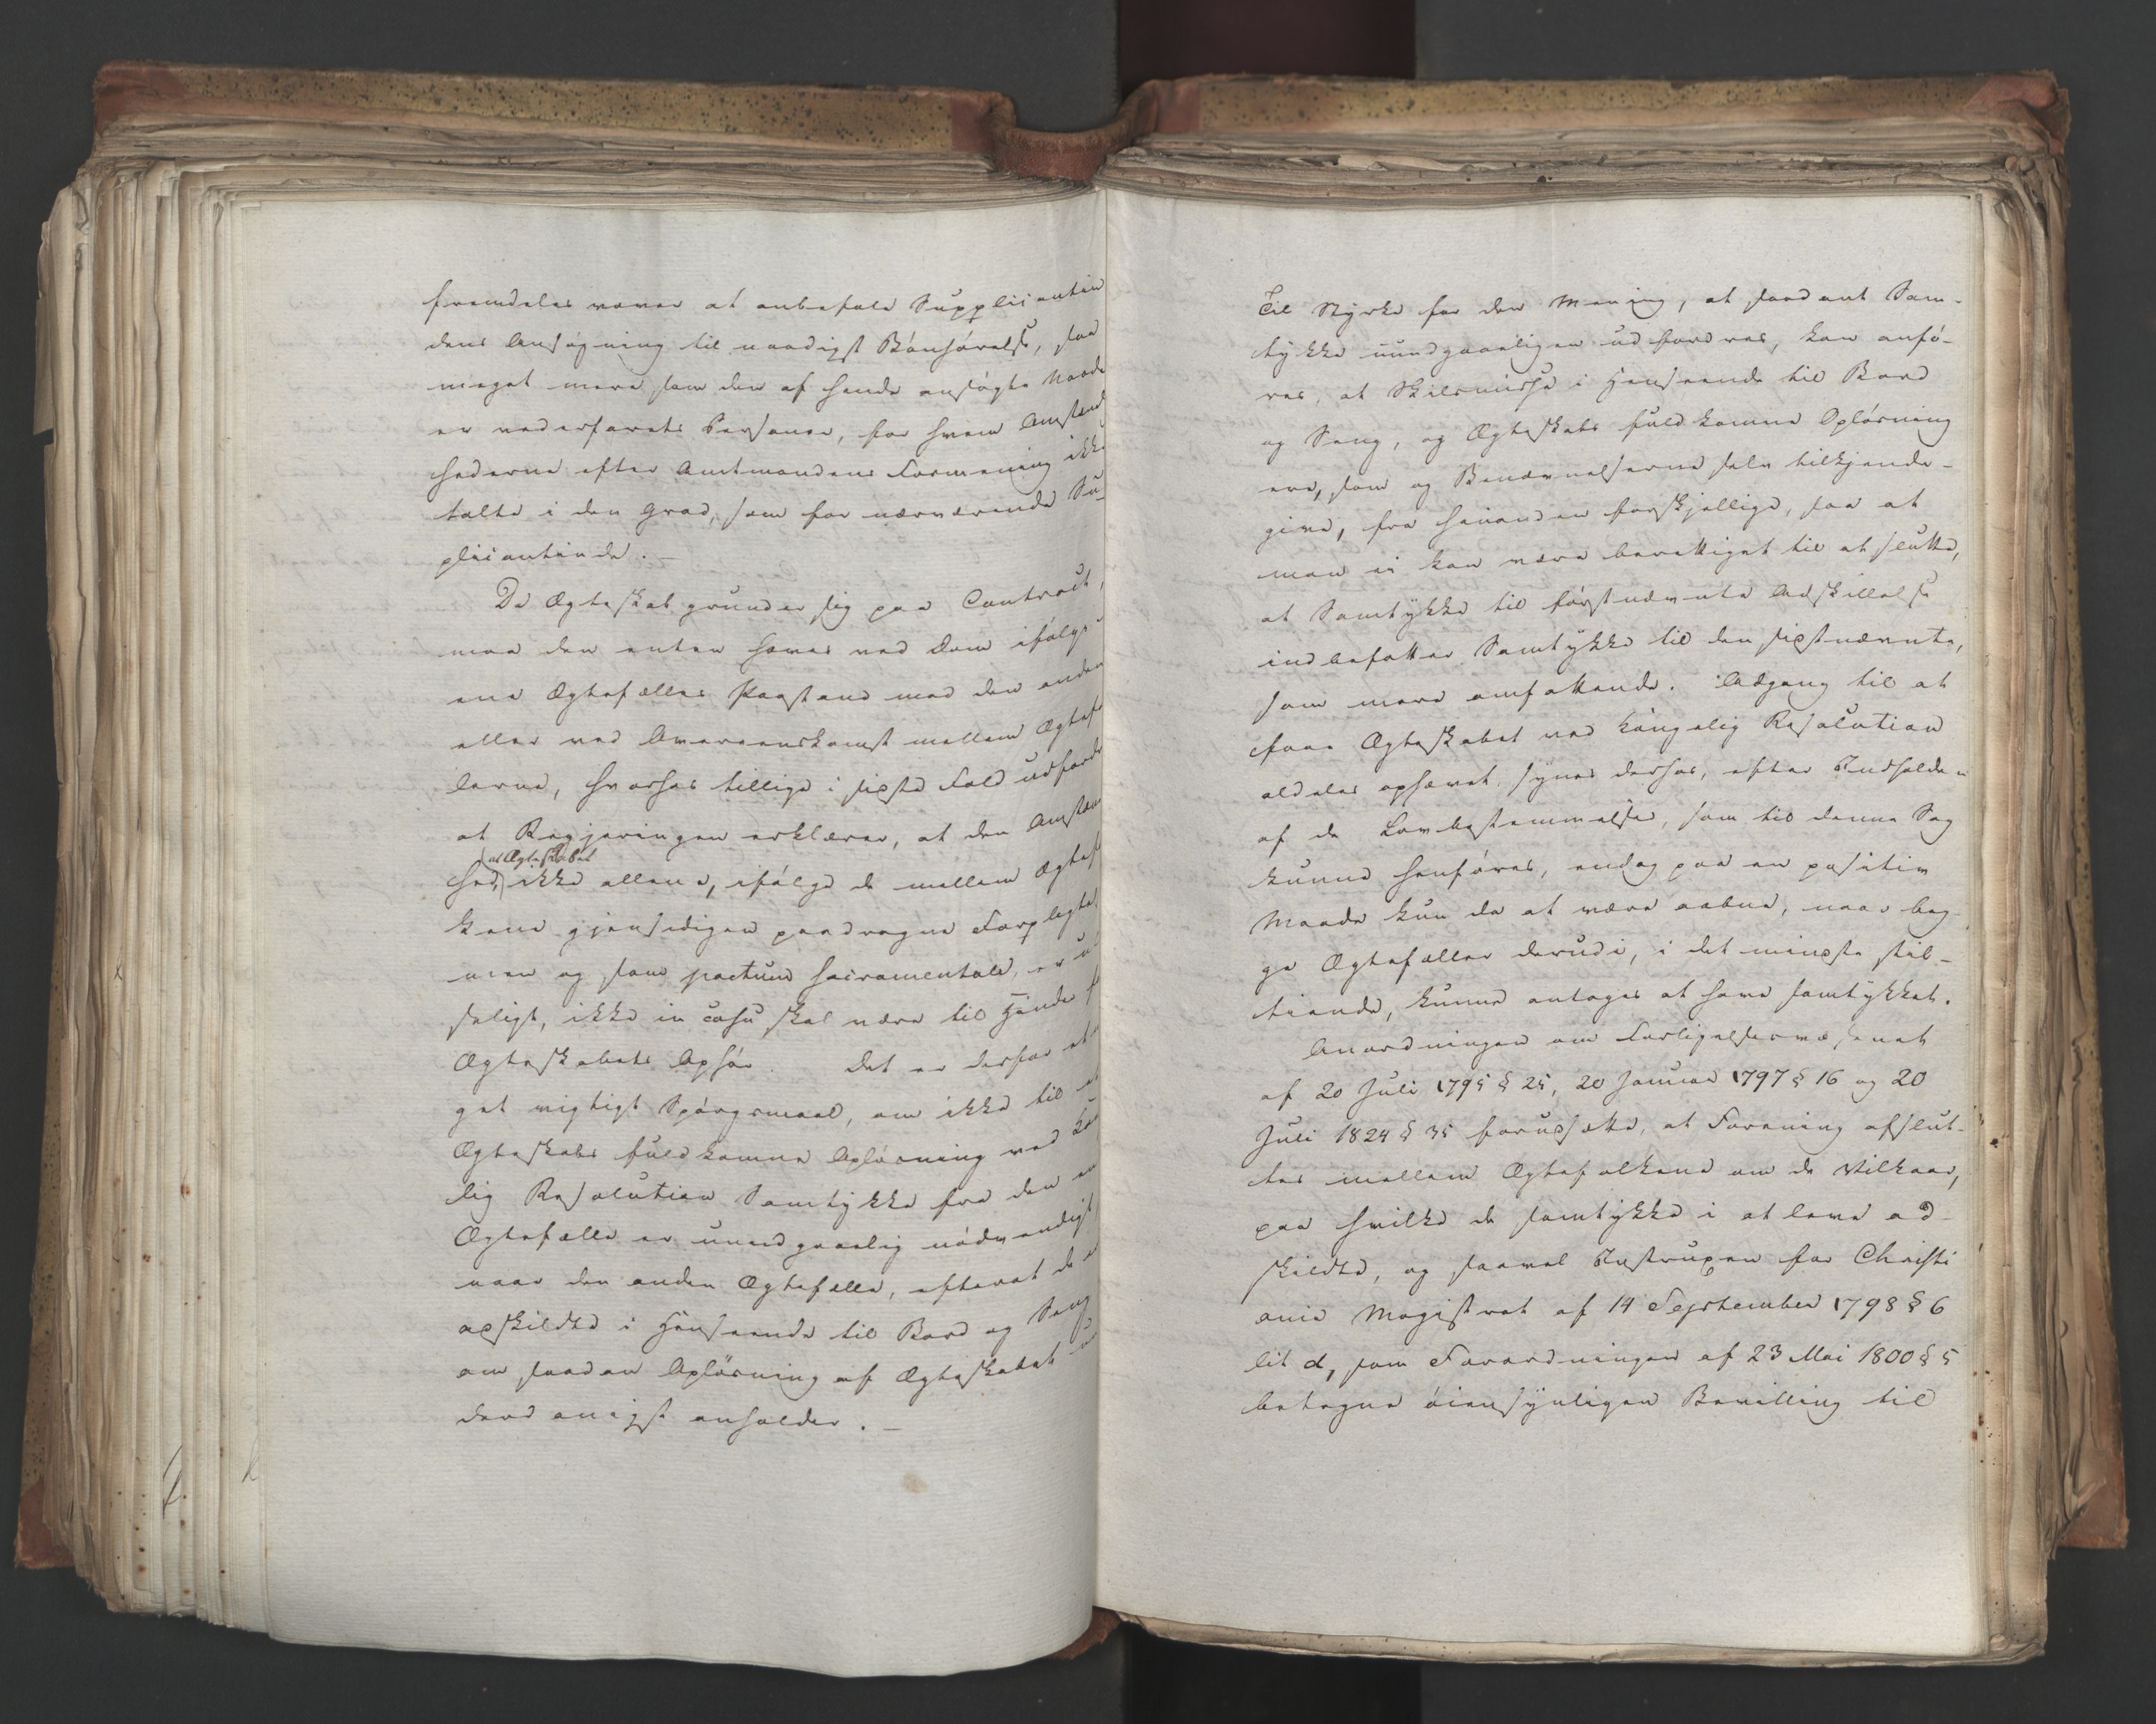 fremdeles vover at anbefale Supplicantin
dens Ansøgning til naadigst Bønhørelse, saa
meget mere som den af hende ansøgte Naade
er vederfaret Personer, for hvem Omstænd
hederne efter Amtmandens Formening ikke
talte i den Grad, som for nærværende Su-
plicantinde. —
Da Ægteskab grunder sig paa Contract,
maa den enten hæves ved Dom ifølge
ene Ægtefælles Paastand mod den anden
eller ved Overeenskomst mellem Ægtefæ
lerne, hvorhos tillige i sidste Fald udfordr
at Regjeringen erklærer, at den Omstæn
hed, at Ægteskabet ikke allene, ifølge de mellem Ægtef
kene gjensidigen paadragne Forpligtel
men og som pactum sacramentale, er u
seligt, ikke in casu skal være til Hinder f
Ægteskabets Ophør. Det er derfor et
get vigtigt Spørgsmaal, om ikke til et
Ægteskabs fuldkomne Opløsning ved Kon
lig Resolution Samtykke fra den en
Ægtefælle er uundgaaelig nødvendigt,
naar den anden Ægtefælle, efterat de er
adskildte i Henseende til Bord og Seng
om saadan Opløsning af Ægteskabet
derdanigst anholder. —
Til Styrke for den Mening, at saadant Sam-
tykke uundgaaeligen udfordres, kan anfø-
res, at Skilsmisse i Henseende til Bord
og Seng, og Ægteskabs fuldkomne Opløsning
ere, som og Benævnelserne selv tilkjende-
give, fra hinanden forskjellige, saa at
man ei kan være berettiget til at slutte,
at Samtykke til førstnævnte Adskillelse
indbefatter Samtykke til den sidstnævnte,
som mere omfattende. Adgang til at
faae Ægteskabet ved Kongelig Resolution
aldeles ophævet synes derhos, efter Indholden
af de Lovbestemmelser, som til denne Sag
kunne henføres, endog paa en positiv
Maade kun da at være aabne, naar beg
ge Ægtefæller derudi, i det mindste stil-
tiende, kunne antages at have samtykket.
Anordningen om Forligelsesvæsenet
af 20 Juli 1795 § 25, 20 Januar 1797 § 16 og 20
Juli 1824 § 35 forudsætte, at Forening afslut-
tes mellem Ægtefolkene om de Vilkaar,
paa hvilke de samtykke i at leve ad-
skildte, og saavel Instruxen for Christi
ania Magistrat af 14 September 1798 § 6
lit d, som Forordningen af 23 Mai 1800 § 5
betegne øiensynligen Bevilling til